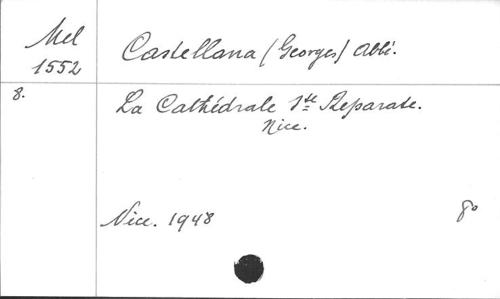 Mel
1552
Castellana (Georges) Abbé.
8.
La Cathédrale Ste Reparate.
Nice.
Nice. 1948
8°